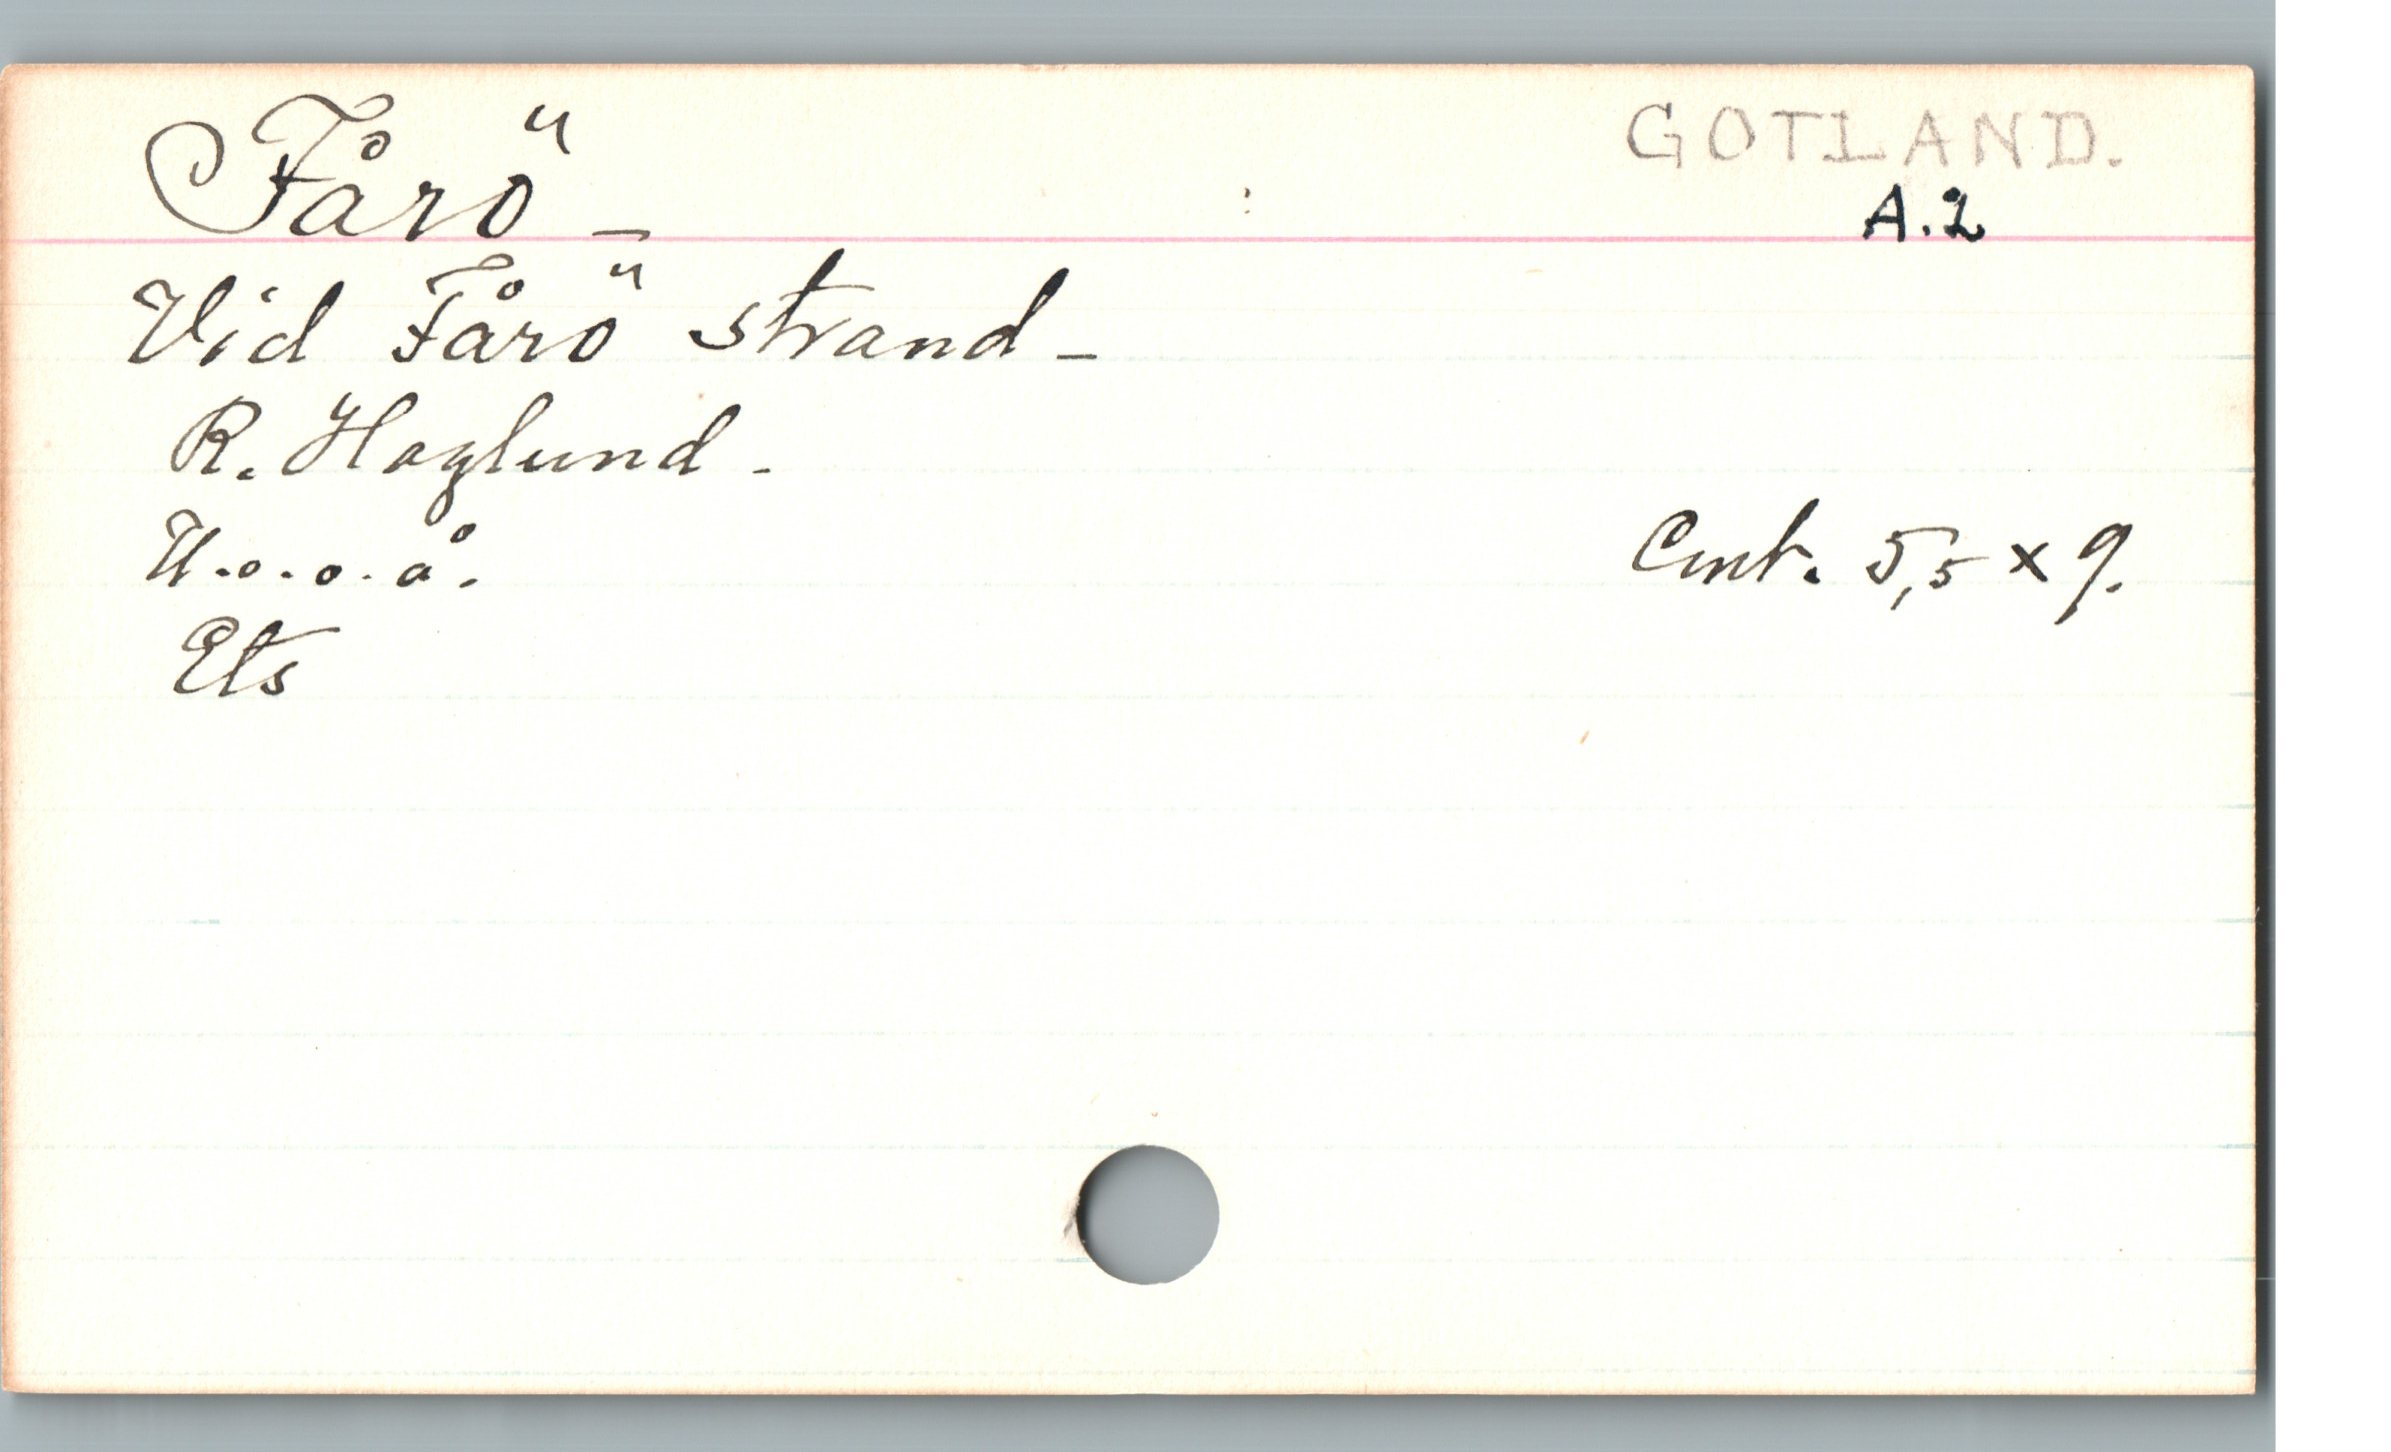 Fårö –
GOTLAND.
A.2
Vid Fårö strand –
R. Haglund –
U.o.o.å.
Cmt. 5,5 x 9.
Ets